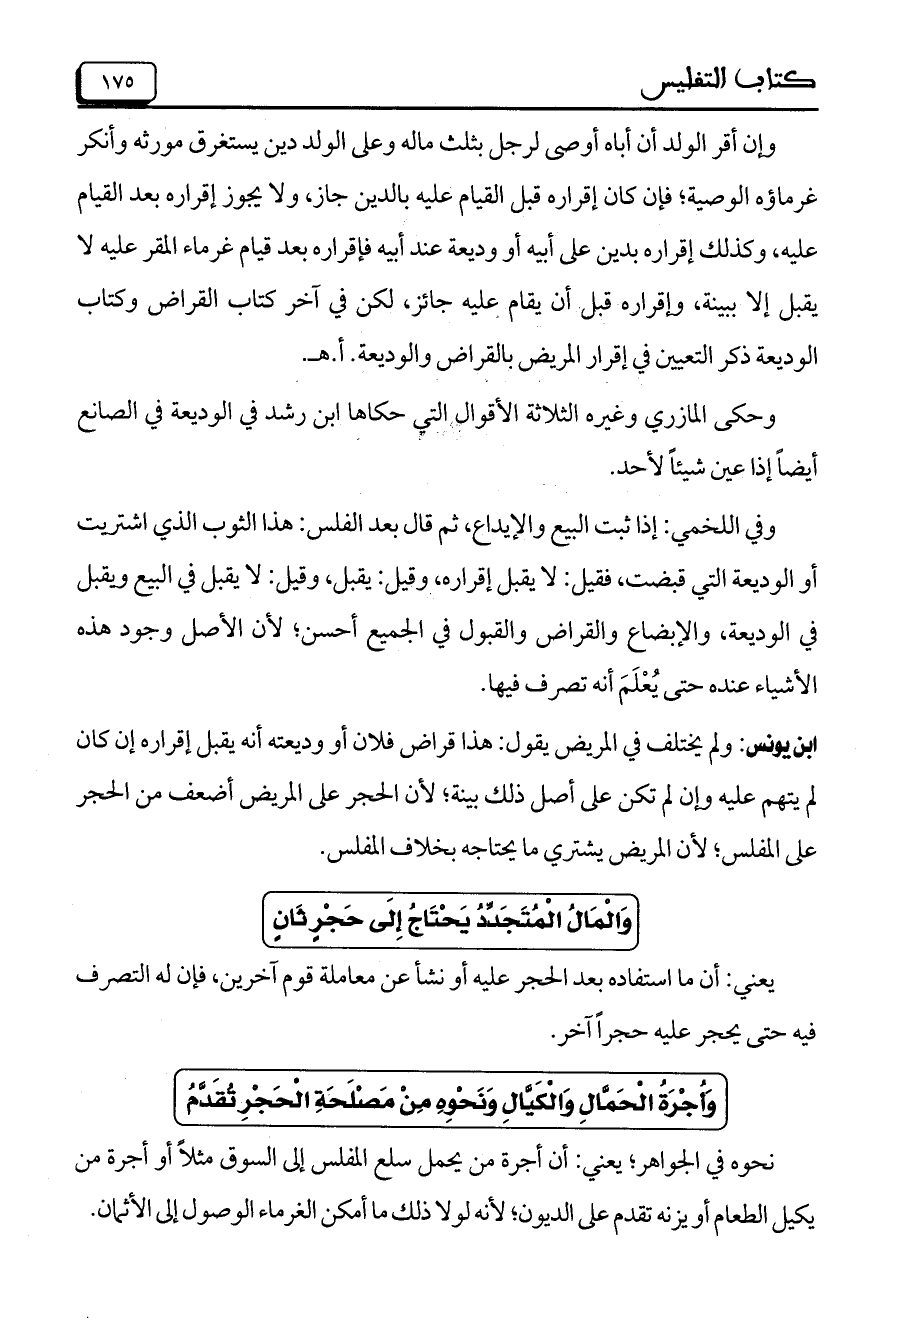 كتاب التفليس
١٧٥
وإن أقر الولد أن أباه أوصى لرجل بثلث ماله وعلى الولد دين يستغرق مورثه وأنكر
غرماؤه الوصية؛ فإن كان إقراره قبل القيام عليه بالدين جاز، ولا يجوز إقراره بعد القيام
عليه، وكذلك إقراره بدين على أبيه أو وديعة عند أبيه فإقراره بعد قيام غرماء المقر عليه لا
يقبل إلا ببينة، وإقراره قبل أن يقام عليه جائز، لكن في آخر كتاب القراض وكتاب
الوديعة ذكر التعيين في إقرار المريض بالقراض والوديعة. أ.هـ.
وحكى المازري وغيره الثلاثة الأقوال التي حكاها ابن رشد في الوديعة في الصانع
أيضاً إذا عين شيئاً لأحد.
وفي اللخمي: إذا ثبت البيع والإيداع، ثم قال بعد الفلس: هذا الثوب الذي اشتريت
أو الوديعة التي قبضت، فقيل: لا يقبل إقراره، وقيل: يقبل، وقيل: لا يقبل في البيع ويقبل
في الوديعة، والإبضاع والقراض والقبول في الجميع أحسن؛ لأن الأصل وجود هذه
الأشياء عنده حتى يُعْلَمَ أنه تصرف فيها.
ابن يونس: ولم يختلف في المريض يقول: هذا قراض فلان أو وديعته أنه يقبل إقراره إن كان
لم يتهم عليه وإن لم تكن على أصل ذلك بينة؛ لأن الحجر على المريض أضعف من الحجر
على المفلس؛ لأن المريض يشتري ما يحتاجه بخلاف المفلس.
وَالْمَالُ الْمُتَجَدِّدُ يَحْتَاجُ إِلَى حَجْرٍ ثَانٍ
يعني: أن ما استفاده بعد الحجر عليه أو نشأ عن معاملة قوم آخرين، فإن له التصرف
فيه حتى يحجر عليه حجراً آخر.
وَأُجْرَةُ الْحَمَّالِ وَالْكَيَّالِ وَنَحْوِهِ مِنْ مَصْلَحَةِ الْحَجْرِ تُقَدَّمُ
نحوه في الجواهر؛ يعني: أن أجرة من يحمل سلع المفلس إلى السوق مثلاً أو أجرة من
يكيل الطعام أو يزنه تقدم على الديون؛ لأنه لولا ذلك ما أمكن الغرماء الوصول إلى الأثمان.